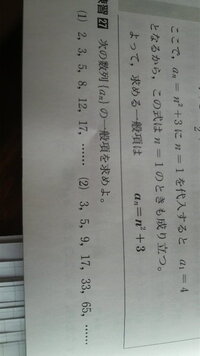 ここで，aₙ＝n²＋3 に n＝1 を代入すると a₁＝4
となるから，この式は n＝1 のときも成り立つ。
よって，求める一般項は aₙ＝n²＋3
習 27 次の数列 {aₙ} の一般項を求めよ。
(1) 2，3，5，8，12，17，…… (2) 3，5，9，17，33，65，……